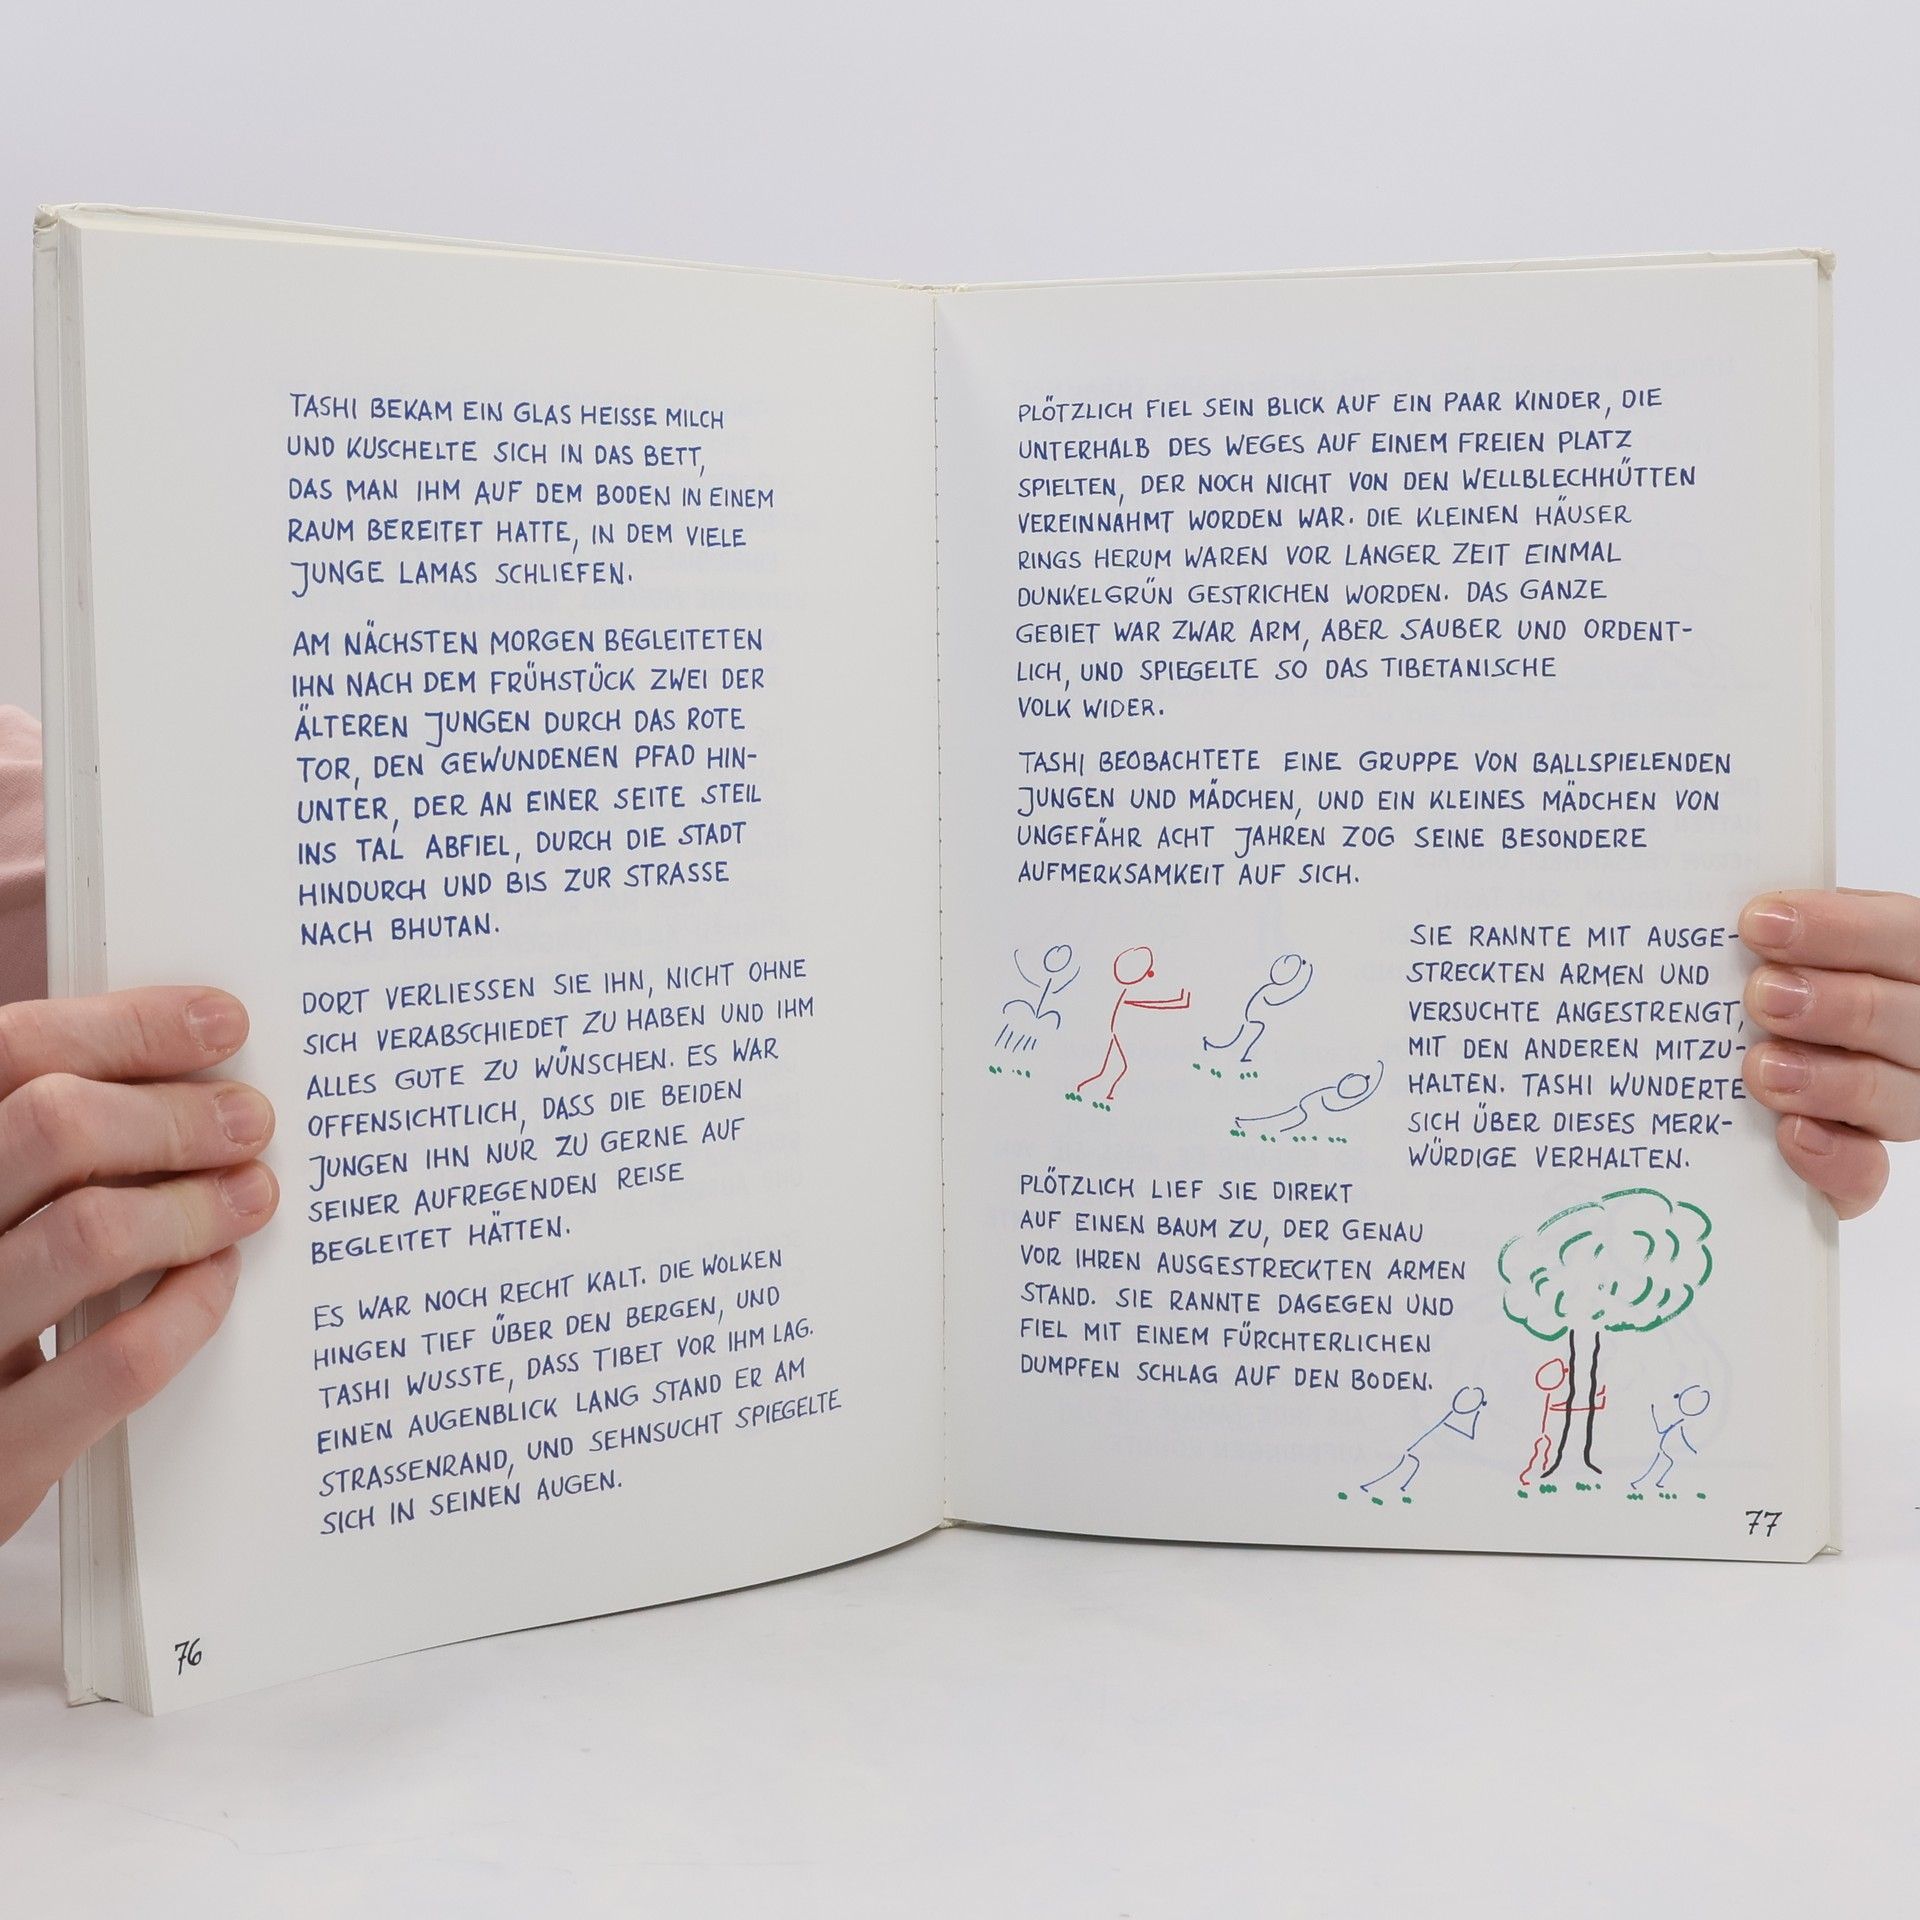 TASHI BEKAM EIN GLAS HEISSE MILCH
UND KUSCHELTE SICH IN DAS BETT,
DAS MAN IHM AUF DEM BODEN IN EINEM
RAUM BEREITET HATTE, IN DEM VIELE
JUNGE LAMAS SCHLIEFEN.
AM NÄCHSTEN MORGEN BEGLEITETEN
IHN NACH DEM FRÜHSTÜCK ZWEI DER
ÄLTEREN JUNGEN DURCH DAS ROTE
TOR, DEN GEWUNDENEN PFAD HIN-
UNTER, DER AN EINER SEITE STEIL
INS TAL ABFIEL, DURCH DIE STADT
HINDURCH UND BIS ZUR STRASSE
NACH BHUTAN.
DORT VERLIESSEN SIE IHN, NICHT OHNE
SICH VERABSCHIEDET ZU HABEN UND IHM
ALLES GUTE ZU WÜNSCHEN. ES WAR
OFFENSICHTLICH, DASS DIE BEIDEN
JUNGEN IHN NUR ZU GERNE AUF
SEINER AUFREGENDEN REISE
BEGLEITET HÄTTEN.
ES WAR NOCH RECHT KALT. DIE WOLKEN
HINGEN TIEF ÜBER DEN BERGEN, UND
TASHI WUSSTE, DASS TIBET VOR IHM LAG.
EINEN AUGENBLICK LANG STAND ER AM
STRASSENRAND, UND SEHNSUCHT SPIEGELTE
SICH IN SEINEN AUGEN.
76
PLÖTZLICH FIEL SEIN BLICK AUF EIN PAAR KINDER, DIE
UNTERHALB DES WEGES AUF EINEM FREIEN PLATZ
SPIELTEN, DER NOCH NICHT VON DEN WELLBLECHHÜTTEN
VEREINNAHMT WORDEN WAR. DIE KLEINEN HÄUSER
RINGS HERUM WAREN VOR LANGER ZEIT EINMAL
DUNKELGRÜN GESTRICHEN WORDEN. DAS GANZE
GEBIET WAR ZWAR ARM, ABER SAUBER UND ORDENT-
LICH, UND SPIEGELTE SO DAS TIBETANISCHE
VOLK WIDER.
TASHI BEOBACHTETE EINE GRUPPE VON BALLSPIELENDEN
JUNGEN UND MÄDCHEN, UND EIN KLEINES MÄDCHEN VON
UNGEFÄHR ACHT JAHREN ZOG SEINE BESONDERE
AUFMERKSAMKEIT AUF SICH.
SIE RANNTE MIT AUSGE-
STRECKTEN ARMEN UND
VERSUCHTE ANGESTRENGT,
MIT DEN ANDEREN MITZU-
HALTEN. TASHI WUNDERTE
SICH ÜBER DIESES MERK-
WÜRDIGE VERHALTEN.
PLÖTZLICH LIEF SIE DIREKT
AUF EINEN BAUM ZU, DER GENAU
VOR IHREN AUSGESTRECKTEN ARMEN
STAND. SIE RANNTE DAGEGEN UND
FIEL MIT EINEM FÜRCHTERLICHEN
DUMPFEN SCHLAG AUF DEN BODEN.
77